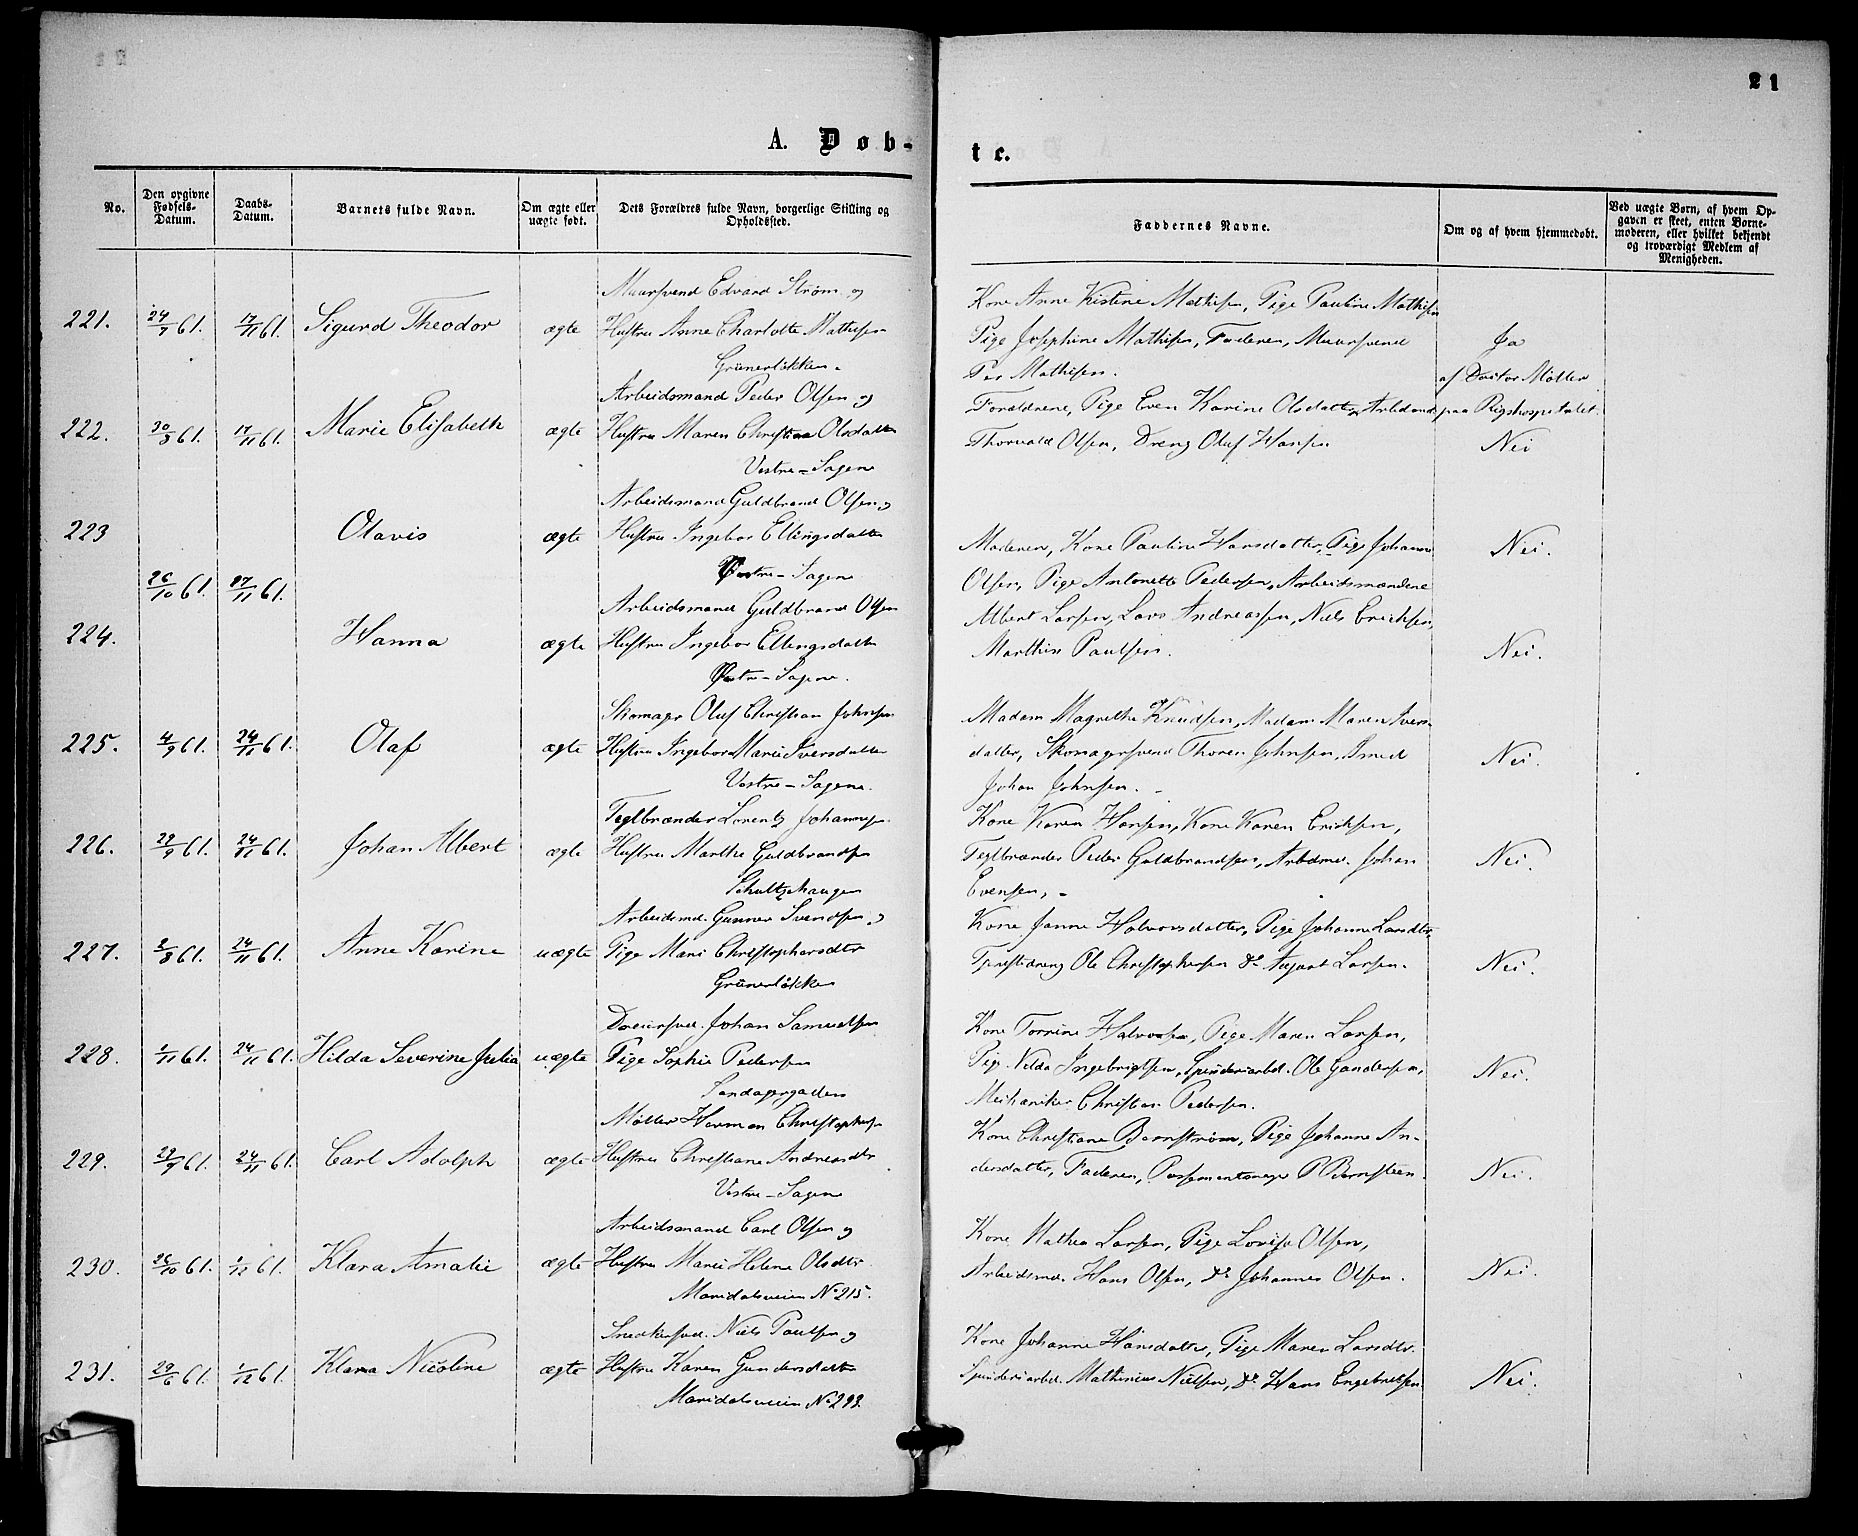 21
A. Døb-
te.
No.
Den opgivne Fødsels-Datum.
Daabs-Datum.
Barnets fulde Navn.
Om ægte eller uægte født.
Dets Forældres fulde Navn, borgerlige Stilling og Opholdssted.
Faddernes Navne.
Om og af hvem hjemmedøbt.
Ved uægte Børn, af hvem Opgaven er skeet, enten Børnemoderen, eller hvilket bekjendt og troværdigt Medlem af Menigheden.
221. 24/7 61. 17/11 61. Sigurd Theodor ægte
Muursvend Edvard Strøm og
Hustru Anne Charlotte Mathisen
Grünerløkken.
Kone Anne Kistine Mathisen, Pige Pauline Mathisen
Pige Josephine Mathisen, Faderen, Muursvend
Per Mathisen.
Ja
af Doctor Møller
paa Rigshospitalet.
222. 30/8 61. 17/11 61. Marie Elisabeth ægte
Arbeidsmand Peder Olsen og
Hustru Maren Christine Olsdatter
Vestre-Sagene
Forældrene, Pige Even Karine Olsdatter, Arbdmd
Thorvald Olsen, Dreng Oluf Hansen
Nei
223 Olavis ægte
Arbeidsmand Guldbrand Olsen og
Hustru Ingebor Ellingsdatter
Vestre-Sagene
26/10 61. 17/11 61.
Moderen, Kone Pauline Hansdatter, Pige Johanne
Olsen, Pige Antonette Pedersen, Arbeidsmændene
Albert Larsen, Lars Andreassen, Niels Ericksen,
Marthin Paulsen.
Nei.
224. Hanna ægte
Arbeidsmand Guldbrand Olsen
Hustru Ingebor Ellingsdatter
Vestre-Sagene.
Nei.
225. 4/9 61. 24/11 61. Olaf ægte
Skomagr Oluf Christian Johnsen
Hustru Ingebor Marie Iversdatter
Vestre-Sagene.
Madam Magrethe Knudsen, Madam Maren Ivers
datter, Skomagersvend Thoren Johnsen, Smed
Johan Johnsen.
Nei.
226. 22/9 61. 24/11 61. Johan Albert ægte
Teglbrænder Lorentz Johannesen
Hustru Marthe Guldbrandsen
Schultzehaugen
Kone Karen Hansen, Kone Karen Ericksen,
Teglbrænder Peder Guldbrandsen, Arbdmd. Johan
Evensen,
Nei.
227. 2/8 61. 24/11 61. Anne Karine uægte
Arbeidsmd. Gunner Svendsen og
Pige Mari Christophersdtr
Grünerløkken
Kone Janne Halvorsdatter, Pige Johanne Larsdtr,
Ole Christophersen Do August Larsen.
Nei.
228. 1/11 61. 24/11 61. Hilda Severine Julia uægte
Dreiersvd. Johan Samuelsen
Pige Sophie Pedersen
Sandagergaden
Kone Torrine Halvorsen, Pige Maren Larsen,
Pige Nilda Ingebrigtsen, Spinderiarbd. Ole Gundersen,
Mechaniker Christian Pedersen.
Nei.
229. 22/9 61. 24/11 61. Carl Adolph ægte
Møller Herman Christophersen
Hustru Christiane Andreasdtr
Vestre-Sagene
Kone Christiane Bernstrøm, Pige Johanne An-
dersdatter, Faderen, Possementmager P Bernsteen.
Nei.
230. 26/10 61. 1/12 61. Klara Amalie ægte
Arbeidsmand Carl Olsen og
Hustru Marie Helene Olsdtr
Maridalsveien No 215.
Kone Mathea Larsen, Pige Lovise Olsen,
Arbeidsmd. Hans Olsen, Do Johannes Olsen.
Nei.
231. 29/6 61. 1/12 61. Klara Nicoline ægte
Snedkersvd. Niels Paulsen og
Hustru Karen Gundersdatter
Maridalsveien No 293.
Kone Johanne Hansdatter, Pige Maren Larsdtr.
Spinderiarbd. Mathinius Nielsen, Do Hans Engebretsen.
Nei.